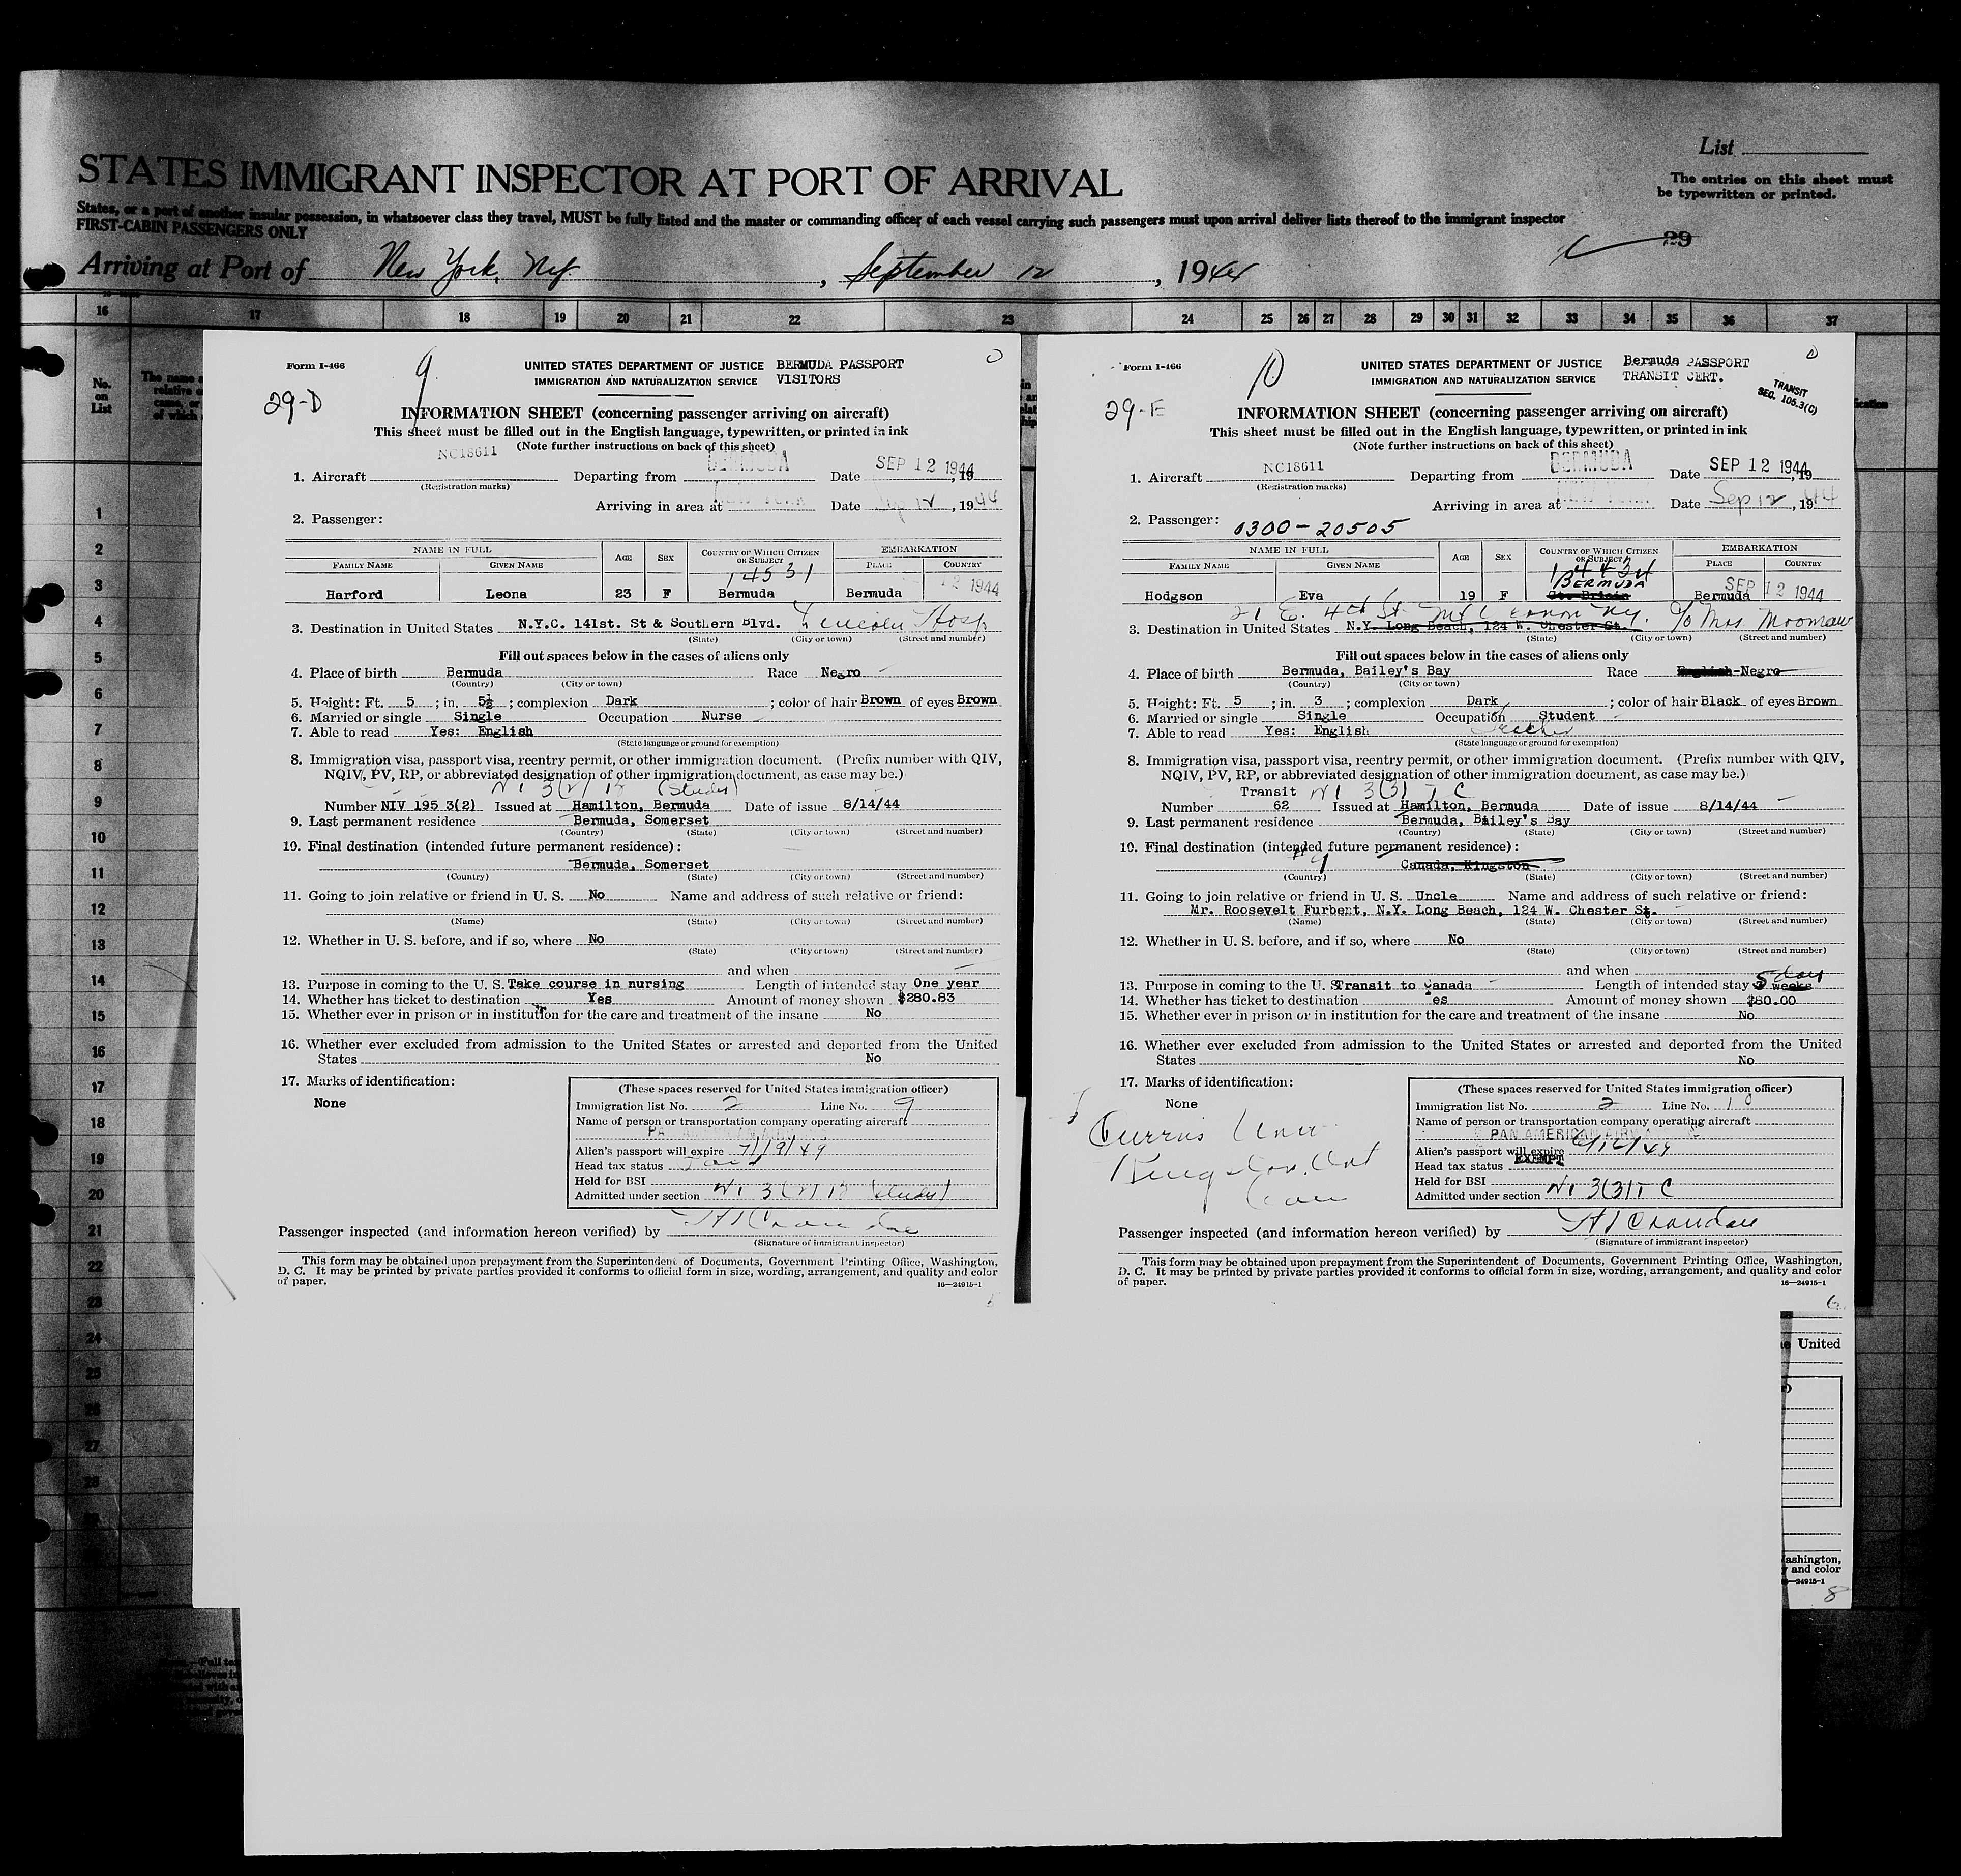 List
STATES IMMIGRANT INSPECTOR AT PORT OF ARRIVAL
The entries on this sheet must
be typewritten or printed.
States, or a port of another insular possession, in whatsoever class they travel, MUST be fully listed and the master or commanding officer of each vessel carrying such passengers must upon arrival deliver lists thereof to the immigrant inspector
FIRST-CABIN PASSENGERS ONLY
29
Arriving at Port of New York, NY. , September 12 , 1944
16 17 18 19 20 21 22 23 24 25 26 27 28 29 30 31 32 33 34 35 36 37
No.
on
List
1
2
3
4
5
6
7
8
9
10
11
12
13
14
15
16
17
18
19
20
21
22
23
24
25
26
27
28
Form I-466
9
UNITED STATES DEPARTMENT OF JUSTICE BERMUDA PASSPORT
IMMIGRATION AND NATURALIZATION SERVICE VISITORS
29-D
INFORMATION SHEET (concerning passenger arriving on aircraft)
This sheet must be filled out in the English language, typewritten, or printed in ink
(Note further instructions on back of this sheet)
1. Aircraft NC18611 Departing from BERMUDA Date SEP 12 1944, 19
(Registration marks)
Arriving in area at NEW YORK Date Sep 12, 1944
2. Passenger:
NAME IN FULL AGE SEX COUNTRY OF WHICH CITIZEN OR SUBJECT EMBARKATION
FAMILY NAME GIVEN NAME PLACE COUNTRY
14531
12 1944
Harford Leona 23 F Bermuda Bermuda
3. Destination in United States N.Y.C. 141st. St & Southern Blvd. Lincoln Hosp
(State) (City or town) (Street and number)
Fill out spaces below in the cases of aliens only
4. Place of birth Bermuda Race Negro
(Country) (City or town)
5. Height: Ft. 5 ; in. 5½ ; complexion Dark ; color of hair Brown of eyes Brown
6. Married or single Single Occupation Nurse
7. Able to read Yes: English
(State language or ground for exemption)
8. Immigration visa, passport visa, reentry permit, or other immigration document. (Prefix number with QIV,
NQIV, PV, RP, or abbreviated designation of other immigration document, as case may be.)
NI 3(2) B (Study)
Number NIV 195 3(2) Issued at Hamilton, Bermuda Date of issue 8/14/44
9. Last permanent residence Bermuda, Somerset
(Country) (State) (City or town) (Street and number)
10. Final destination (intended future permanent residence):
Bermuda, Somerset
(Country) (State) (City or town) (Street and number)
11. Going to join relative or friend in U. S. No Name and address of such relative or friend:
(Name) (State) (City or town) (Street and number)
12. Whether in U. S. before, and if so, where No
(State) (City or town) (Street and number)
and when
13. Purpose in coming to the U. S. Take course in nursing Length of intended stay One year
14. Whether has ticket to destination Yes Amount of money shown $280.83
15. Whether ever in prison or in institution for the care and treatment of the insane No
16. Whether ever excluded from admission to the United States or arrested and deported from the United
States No
17. Marks of identification:
None
(These spaces reserved for United States immigration officer)
Immigration list No. 2 Line No. 9
Name of person or transportation company operating aircraft
Alien's passport will expire 7/19/49
Head tax status Paid
Held for BSI
Admitted under section NI 3(2) B (Study)
Passenger inspected (and information hereon verified) by
(Signature of immigrant inspector)
This form may be obtained upon prepayment from the Superintendent of Documents, Government Printing Office, Washington,
D. C. It may be printed by private parties provided it conforms to official form in size, wording, arrangement, and quality and color
of paper.
16—24915-1
Form I-466
10
UNITED STATES DEPARTMENT OF JUSTICE Bermuda PASSPORT
IMMIGRATION AND NATURALIZATION SERVICE TRANSIT CERT.
TRANSIT
SEC. 105.3(C)
29-E
INFORMATION SHEET (concerning passenger arriving on aircraft)
This sheet must be filled out in the English language, typewritten, or printed in ink
(Note further instructions on back of this sheet)
1. Aircraft NC18611 Departing from BERMUDA Date SEP 12 1944, 19
(Registration marks)
Arriving in area at NEW YORK Date Sep 12, 1944
2. Passenger: 0300-20505
NAME IN FULL AGE SEX COUNTRY OF WHICH CITIZEN OR SUBJECT EMBARKATION
FAMILY NAME GIVEN NAME PLACE COUNTRY
BERMUDA
SEP 12 1944
Hodgson Eva 19 F Gt. Britain Bermuda
21 E. 4th St. Mt Vernon NY. c/o Mrs Moomaw
3. Destination in United States N.Y. Long Beach, 124 W. Chester St.
(State) (City or town) (Street and number)
Fill out spaces below in the cases of aliens only
4. Place of birth Bermuda, Bailey's Bay Race English-Negro
(Country) (City or town)
5. Height: Ft. 5 ; in. 3 ; complexion Dark ; color of hair Black of eyes Brown
6. Married or single Single Occupation Student
7. Able to read Yes: English Teacher
(State language or ground for exemption)
8. Immigration visa, passport visa, reentry permit, or other immigration document. (Prefix number with QIV,
NQIV, PV, RP, or abbreviated designation of other immigration document, as case may be.)
Transit NI 3(3) TC
Number 62 Issued at Hamilton, Bermuda Date of issue 8/14/44
9. Last permanent residence Bermuda, Bailey's Bay
(Country) (State) (City or town) (Street and number)
10. Final destination (intended future permanent residence):
#9 Canada, Kingston
(Country) (State) (City or town) (Street and number)
11. Going to join relative or friend in U. S. Uncle Name and address of such relative or friend:
Mr. Roosevelt Furbert, N.Y. Long Beach, 124 W. Chester St.
(Name) (State) (City or town) (Street and number)
12. Whether in U. S. before, and if so, where No
(State) (City or town) (Street and number)
and when
5 days
13. Purpose in coming to the U. S. Transit to Canada Length of intended stay weeks
14. Whether has ticket to destination Yes Amount of money shown $80.00
15. Whether ever in prison or in institution for the care and treatment of the insane No
16. Whether ever excluded from admission to the United States or arrested and deported from the United
States No
17. Marks of identification:
None
Kingston, Ont
Can
(These spaces reserved for United States immigration officer)
Immigration list No. 2 Line No. 10
Name of person or transportation company operating aircraft
PAN AMERICAN AIRWAYS
Alien's passport will expire
Head tax status EXEMPT
Held for BSI
Admitted under section NI 3(3) TC
Passenger inspected (and information hereon verified) by
(Signature of immigrant inspector)
This form may be obtained upon prepayment from the Superintendent of Documents, Government Printing Office, Washington,
D. C. It may be printed by private parties provided it conforms to official form in size, wording, arrangement, and quality and color
of paper.
16—24915-1
6
United
ashington,
and color
24915-1
8